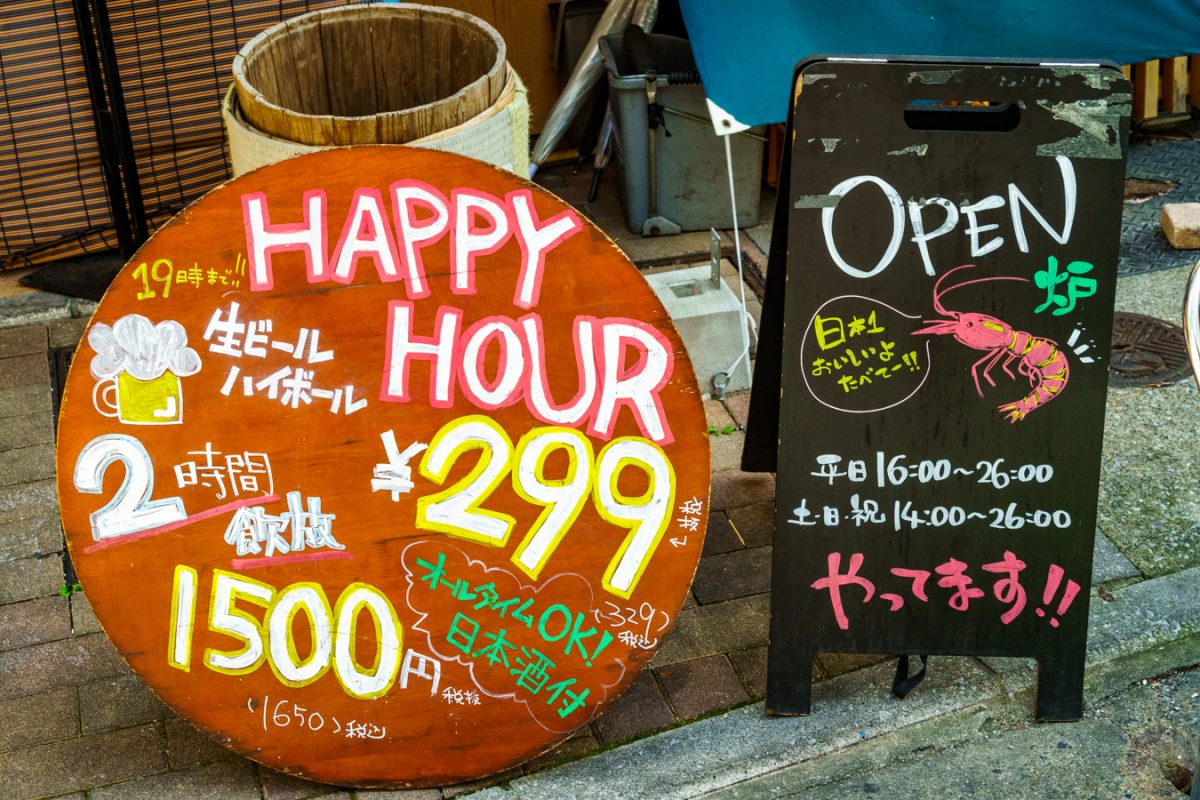 HAPPY
HOUR
19時まで!!
生ビール
ハイボール
¥299
税抜
(329)
税込
2時間
飲放
1500円
税抜
(1650)税込
オールタイムOK!
日本酒付
OPEN
炉
日本1
おいしいよ
たべてー!!
平日16:00~26:00
土・日・祝 14:00~26:00
やってます!!